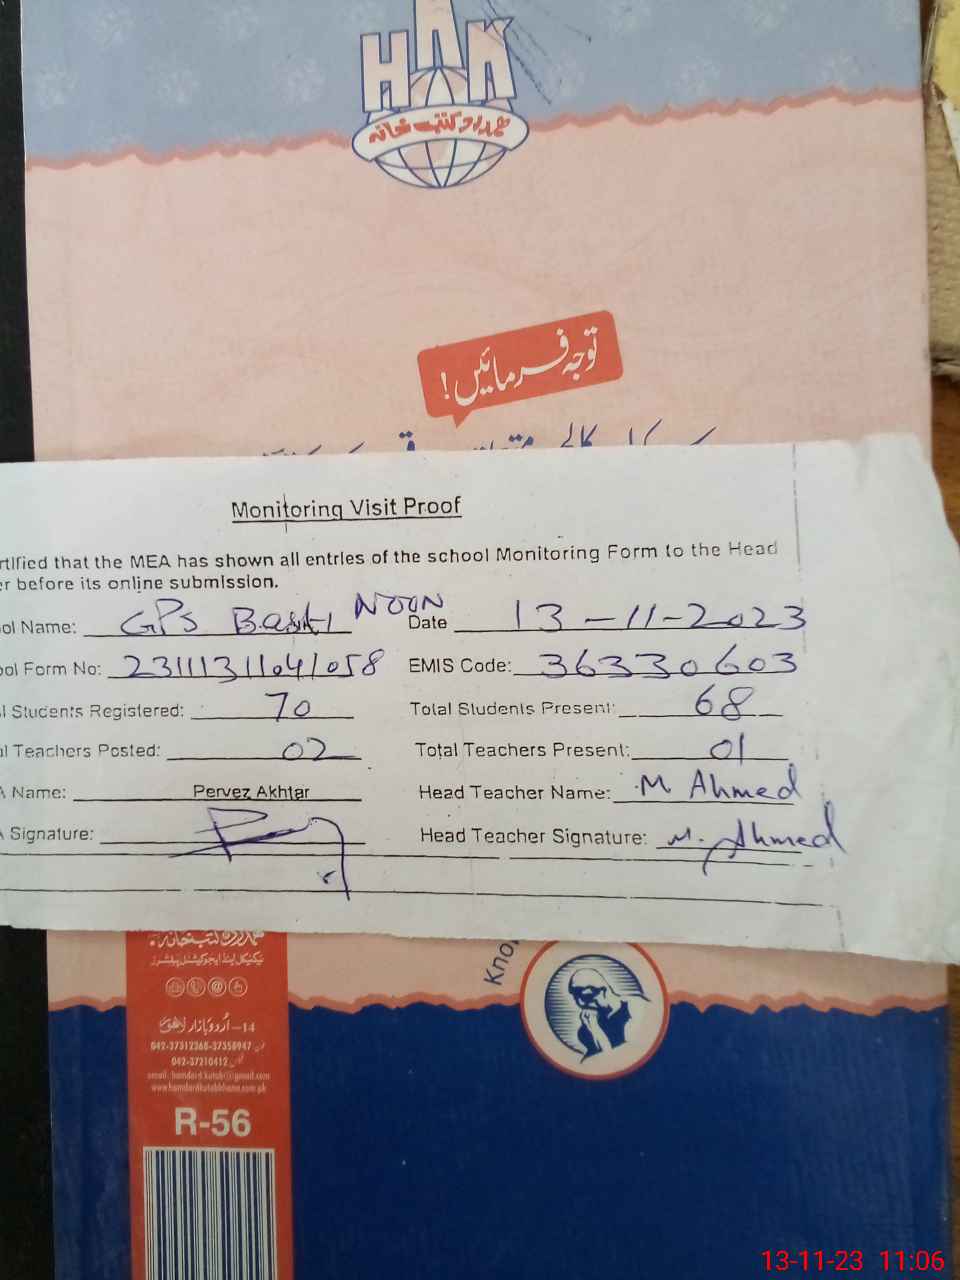 HAK
ہمدرد کتب خانہ
توجہ فرمائیں!
Monitoring Visit Proof
rtified that the MEA has shown all entries of the school Monitoring Form to the Head
er before its online submission.
ol Name: GPS Basti NOON Date 13-11-2023
ool Form No: 23111311041058 EMIS Code: 36330603
l Students Registered: 70 Total Students Present: 68
al Teachers Posted: 02 Total Teachers Present: 01
A Name: Pervez Akhtar Head Teacher Name: M Ahmed
A Signature: Head Teacher Signature: M. Ahmed
ہمدرد کتب خانہ
ٹیکنیکل اینڈ ایجوکیشنل پبلشرز
Kno
14-اُردو بازار لاہور
042-37312368-37358947
042-37210412
email: hamdard.kutab@gmail.com
www.hamdardkutabkhana.com.pk
R-56
13-11-23 11:06